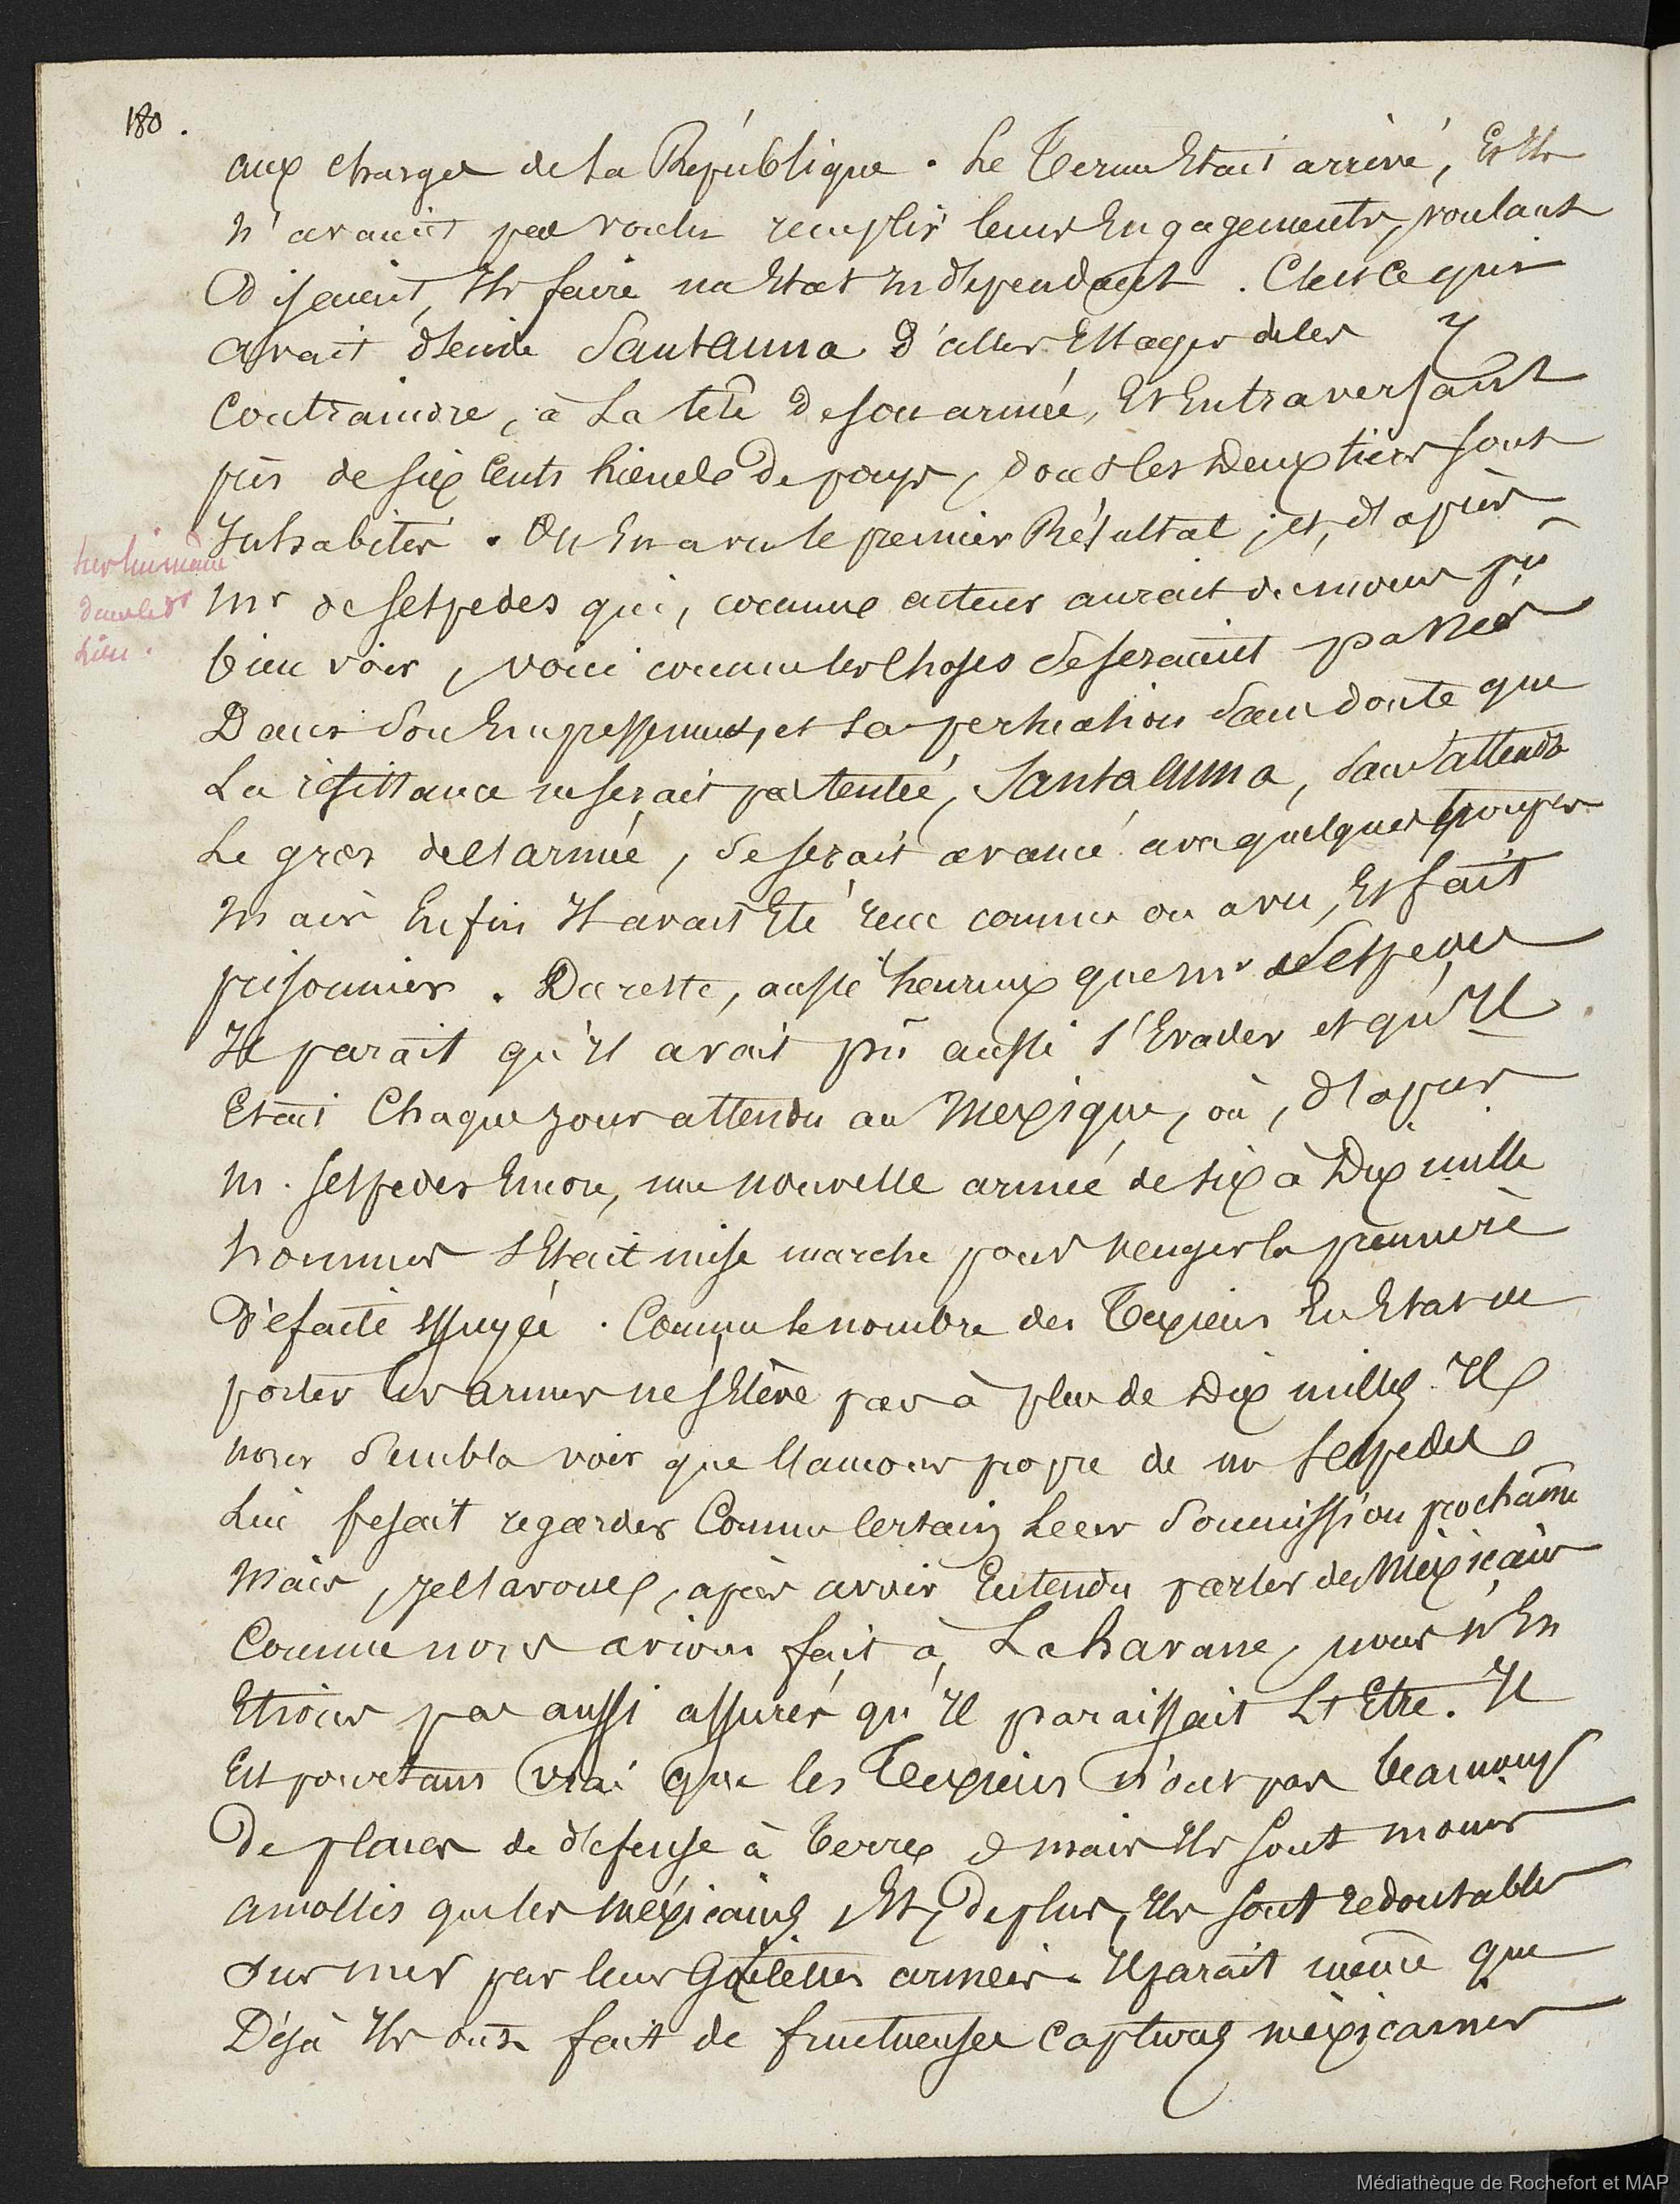 180.
aux charges de la République. Le Terme Etait arrivé, Et Ils
n'avaient pas voulu remplir leurs Engagements, voulant
Disaient, Ils faire un Etat Independant. C'est ce qui
avait décidé Santanna d'aller Essayer de les
Contraindre, à La tête De son armée, Et En traversant
près de six Cents Lieues De pays, dont les Deux tiers sont
Inhabités. On En a vu le premier Résultat ; et, d'après
Mr de Sespedes qui, comme acteur aurait du moins pu
bien voir, voici comme les Choses Se seraient passées
Dans Son Empressement, et la persuation Sans doute que
La résistance ne serait pas tentée, Santa anna, Sans attendre
Le gros de l'armée, Se serait avancé avec quelques troupes
Mais Enfin Il avait Eté recu comme on a vu, Et fait
prisonnier. Du reste, aussi heureux que Mr de Sespedes
Il paraît qu'Il avait pû aussi s'Evader et qu'Il
Etait Chaque jour attendu au Mexique, où, d'apres
M. Sespedes Encore, une nouvelle armée de six à Dix mille
hommes s'Etait mise marche pour venger la première
Défaite Essuyée. Comme le nombre des Texiens En Etat de
porter les armes ne s'Elève pas à plus de Dix mille. Il
nous Sembla voir que l'amour propre de mr Sespedes
Lui fesait regarder Comme Certain Leur Soumission prochaine
Mais, je l'avoue, après avoir Entendu parler des Mexicains
Comme nous avions fait à La havane, nous n'En
Etions pas aussi assurés qu'Il paraissait L'Etre. Il
Est pourtant vrai Que les Texiens N'ont pas beaucoup
De places de défense à Terre mais Ils sont moins
amollis que les méxicains, Et, De plus, Ils sont redoutables
sur mer par leurs Goëlettes armées. Il paraît même que
Déjà Ils ont fait de fructueuses Captures méxicaines